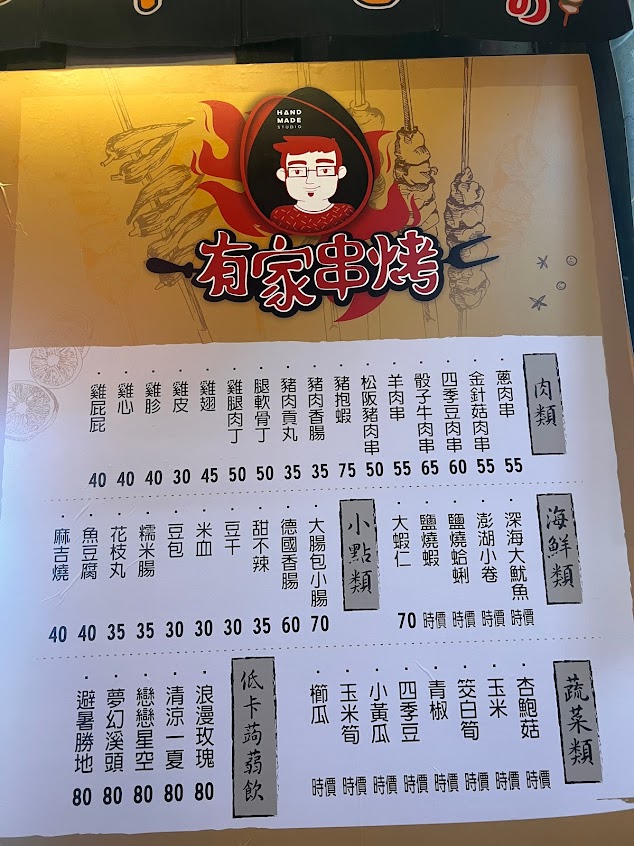 の
HAND
MADE
STUDIO
有家串烤
肉類
・蔥肉串 55
・金針菇肉串 55
・四季豆肉串 60
・骰子牛肉串 65
・羊肉串 55
・松阪豬肉串 50
・豬抱蝦 75
・豬肉香腸 35
・豬肉貢丸 35
・腿軟骨丁 50
・雞腿肉丁 50
・雞翅 45
・雞皮 30
・雞胗 40
・雞心 40
・雞屁屁 40
海鮮類
・深海大魷魚 時價
・澎湖小卷 時價
・鹽燒蛤蜊 時價
・鹽燒蝦 時價
・大蝦仁 70
小點類
・大腸包小腸 70
・德國香腸 60
・甜不辣 35
・豆干 30
・米血 30
・豆包 30
・糯米腸 35
・花枝丸 35
・魚豆腐 40
・麻吉燒 40
蔬菜類
・杏鮑菇 時價
・玉米 時價
・筊白筍 時價
・青椒 時價
・四季豆 時價
・小黃瓜 時價
・玉米筍 時價
・櫛瓜 時價
低卡蒟蒻飲
・浪漫玫瑰 80
・清涼一夏 80
・戀戀星空 80
・夢幻溪頭 80
・避暑勝地 80